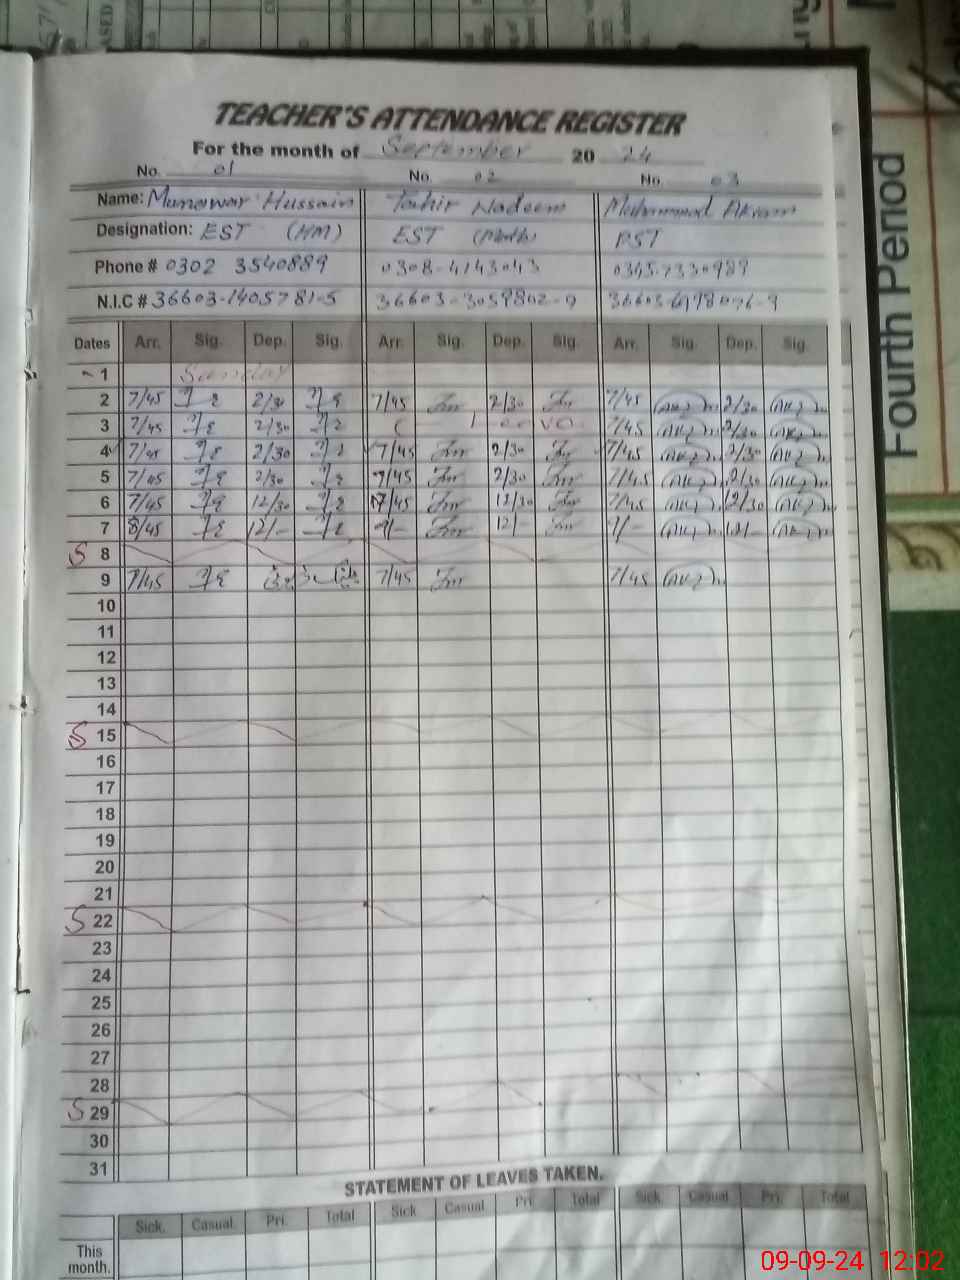 TEACHER'S ATTENDANCE REGISTER
For the month of September 20 24
No. 01 No. 02 No. 03
Name: Munawar Hussain Tahir Nadeem Muhammad Akram
Designation: EST (HM) EST (Math) PST
Phone # 0302 3540889 0308-4143043 0345-7330989
N.I.C # 36603-1405781-5 36603-3059802-9
Dates Arr. Sig. Dep. Sig. Arr. Sig. Dep. Sig. Arr. Sig. Dep. Sig.
1 Sunday
2 7/45 2/30 7/45 2/30 7/45 2/30
3 7/45 2/30 7/45 2/30
4 7/45 2/30 7/45 2/30 7/45 2/30
5 7/45 2/30 7/45 2/30 7/45 2/30
6 7/45 12/30 7/45 12/30 7/45 12/30
7 8/45 12/- 9/- 12/- 9/- 12/-
S 8
9 7/45 7/45 7/45
10
11
12
13
14
S 15
16
17
18
19
20
21
S 22
23
24
25
26
27
28
S 29
30
31
STATEMENT OF LEAVES TAKEN.
Sick. Casual Pri. Total Sick Casual Pri Total Sick. Casual Pri. Total
This
month.
Fourth Period
09-09-24 12:02